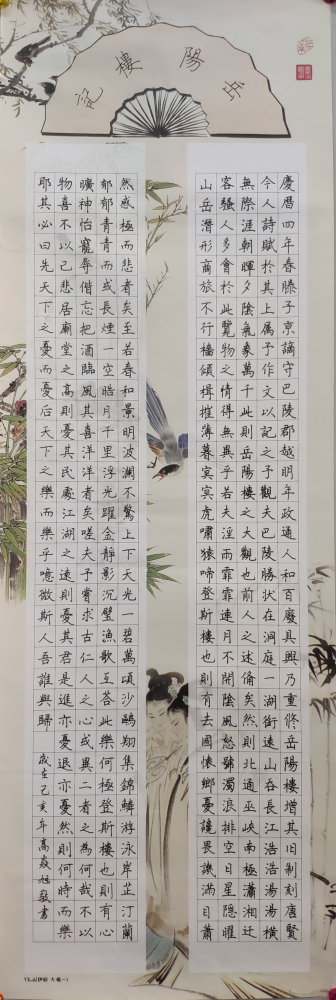 岳陽樓記
慶曆四年春滕子京謫守巴陵郡越明年政通人和百廢具興乃重修岳陽樓增其旧制刻唐賢
今人詩賦於其上属予作文以記之予觀夫巴陵勝状在洞庭一湖銜遠山吞長江浩浩湯湯橫
無際涯朝暉夕陰氣象萬千此則岳陽樓之大觀也前人之述俻矣然則北通巫峡南極瀟湘迁
客騷人多會於此覽物之情得無異乎若夫淫雨霏霏連月不開陰風怒號濁浪排空日星隱曜
山岳潛形商旅不行檣傾楫摧薄暮冥冥虎嘯猿啼登斯樓也則有去國懷鄉憂讒畏譏滿目蕭
然感極而悲者矣至若春和景明波瀾不驚上下天光一碧萬頃沙鷗翔集錦鱗游泳岸芷汀蘭
郁郁青青而或長煙一空皓月千里浮光躍金靜影沉璧漁歌互答此樂何極登斯樓也則有心
曠神怡寵辱偕忘把酒臨風其喜洋洋者矣嗟夫予嘗求古仁人之心或異二者之為何哉不以
物喜不以己悲居廟堂之高則憂其民處江湖之遠則憂其君是進亦憂退亦憂然則何時而樂
耶其必曰先天下之憂而憂后天下之樂而樂乎噫微斯人吾誰與歸
歲在己亥年高焱旭敬書